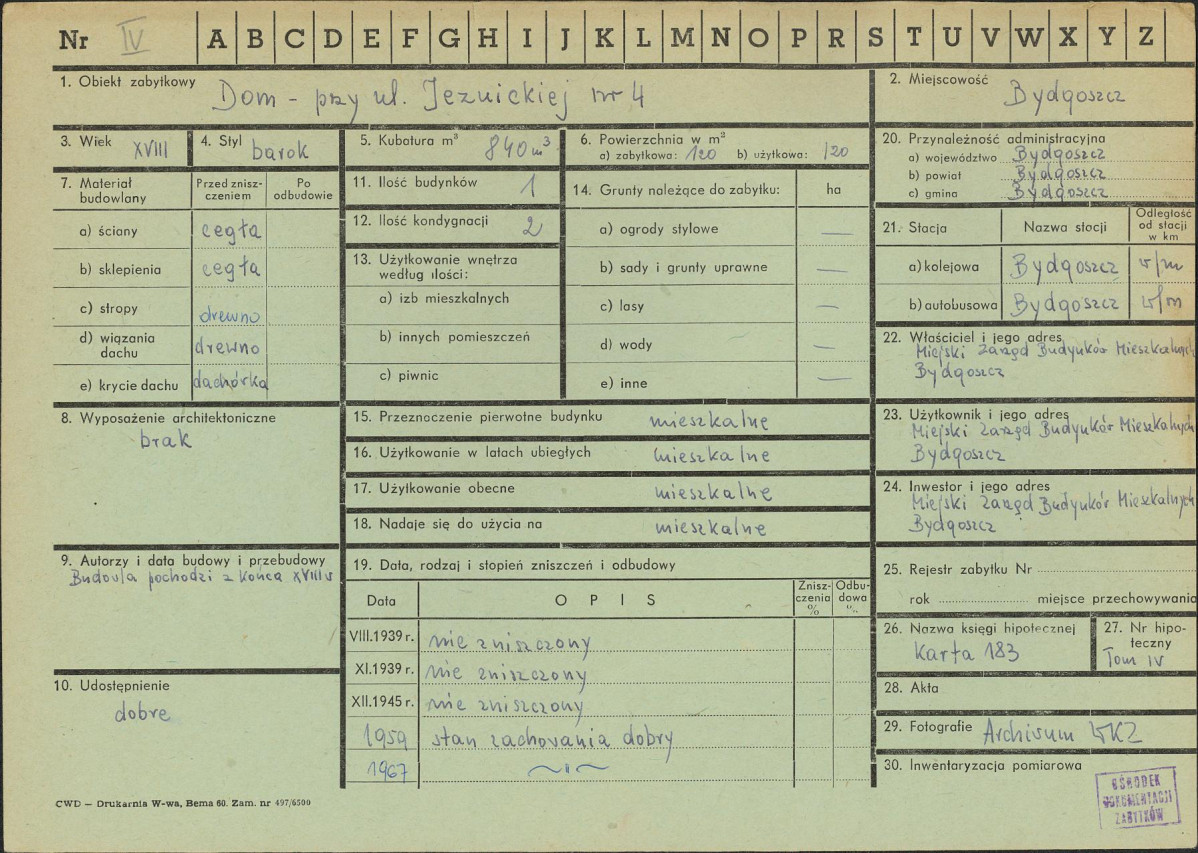 Nr IV A B C D E F G H I J K L M N O P R S T U V W X Y Z
1. Obiekt zabytkowy Dom - przy ul. Jeznickiej nr 4
2. Miejscowość Bydgoszcz
3. Wiek XVIII
4. Styl barok
5. Kubatura m³ 840 m³
6. Powierzchnia w m²
a) zabytkowa: 120 b) użytkowa: 120
20. Przynależność administracyjna
a) województwo Bydgoszcz
b) powiat Bydgoszcz
c) gmina Bydgoszcz
7. Materiał budowlany
Przed znisz-
czeniem
Po
odbudowie
a) ściany cegła
b) sklepienia cegła
c) stropy drewno
d) wiązania
dachu drewno
e) krycie dachu dachówka
11. Ilość budynków 1
12. Ilość kondygnacji 2
13. Użytkowanie wnętrza
według ilości:
a) izb mieszkalnych
b) innych pomieszczeń
c) piwnic
14. Grunty należące do zabytku: ha
a) ogrody stylowe —
b) sady i grunty uprawne —
c) lasy —
d) wody —
e) inne —
21. Stacja Nazwa stacji
Odległość
od stacji
w km
a) kolejowa Bydgoszcz w/m
b) autobusowa Bydgoszcz w/m
22. Właściciel i jego adres
Miejski Zarząd Budynków Mieszkalnych
Bydgoszcz
8. Wyposażenie architektoniczne
brak
15. Przeznoczenie pierwotne budynku mieszkalne
16. Użytkowanie w latach ubiegłych mieszkalne
17. Użytkowanie obecne mieszkalne
18. Nadaje się do użycia na mieszkalne
23. Użytkownik i jego adres
Miejski Zarząd Budynków Mieszkalnych
Bydgoszcz
24. Inwestor i jego adres
Miejski Zarząd Budynków Mieszkalnych
Bydgoszcz
9. Autorzy i data budowy i przebudowy
Budowla pochodzi z końca XVIII w
19. Data, rodzaj i stopień zniszczeń i odbudowy
Data
OPIS
Znisz-
czenia
%
Odbu-
dowa
%
VIII.1939 r. nie zniszczony
XI.1939 r. nie zniszczony
XII.1945 r. nie zniszczony
1959 stan zachowania dobry
1967 ~ıı~
25. Rejestr zabytku Nr
rok miejsce przechowywania
26. Nazwa księgi hipotecznej
Karta 183
27. Nr hipo-
teczny
Tom IV
10. Udostępnienie
dobre
28. Akta
29. Fotografie Archiwum WKZ
30. Inwentaryzacja pomiarowa
OŚRODEK
DOKUMENTACJI
ZABYTKÓW
CWD — Drukarnia W-wa, Bema 60. Zam. nr 497/6500